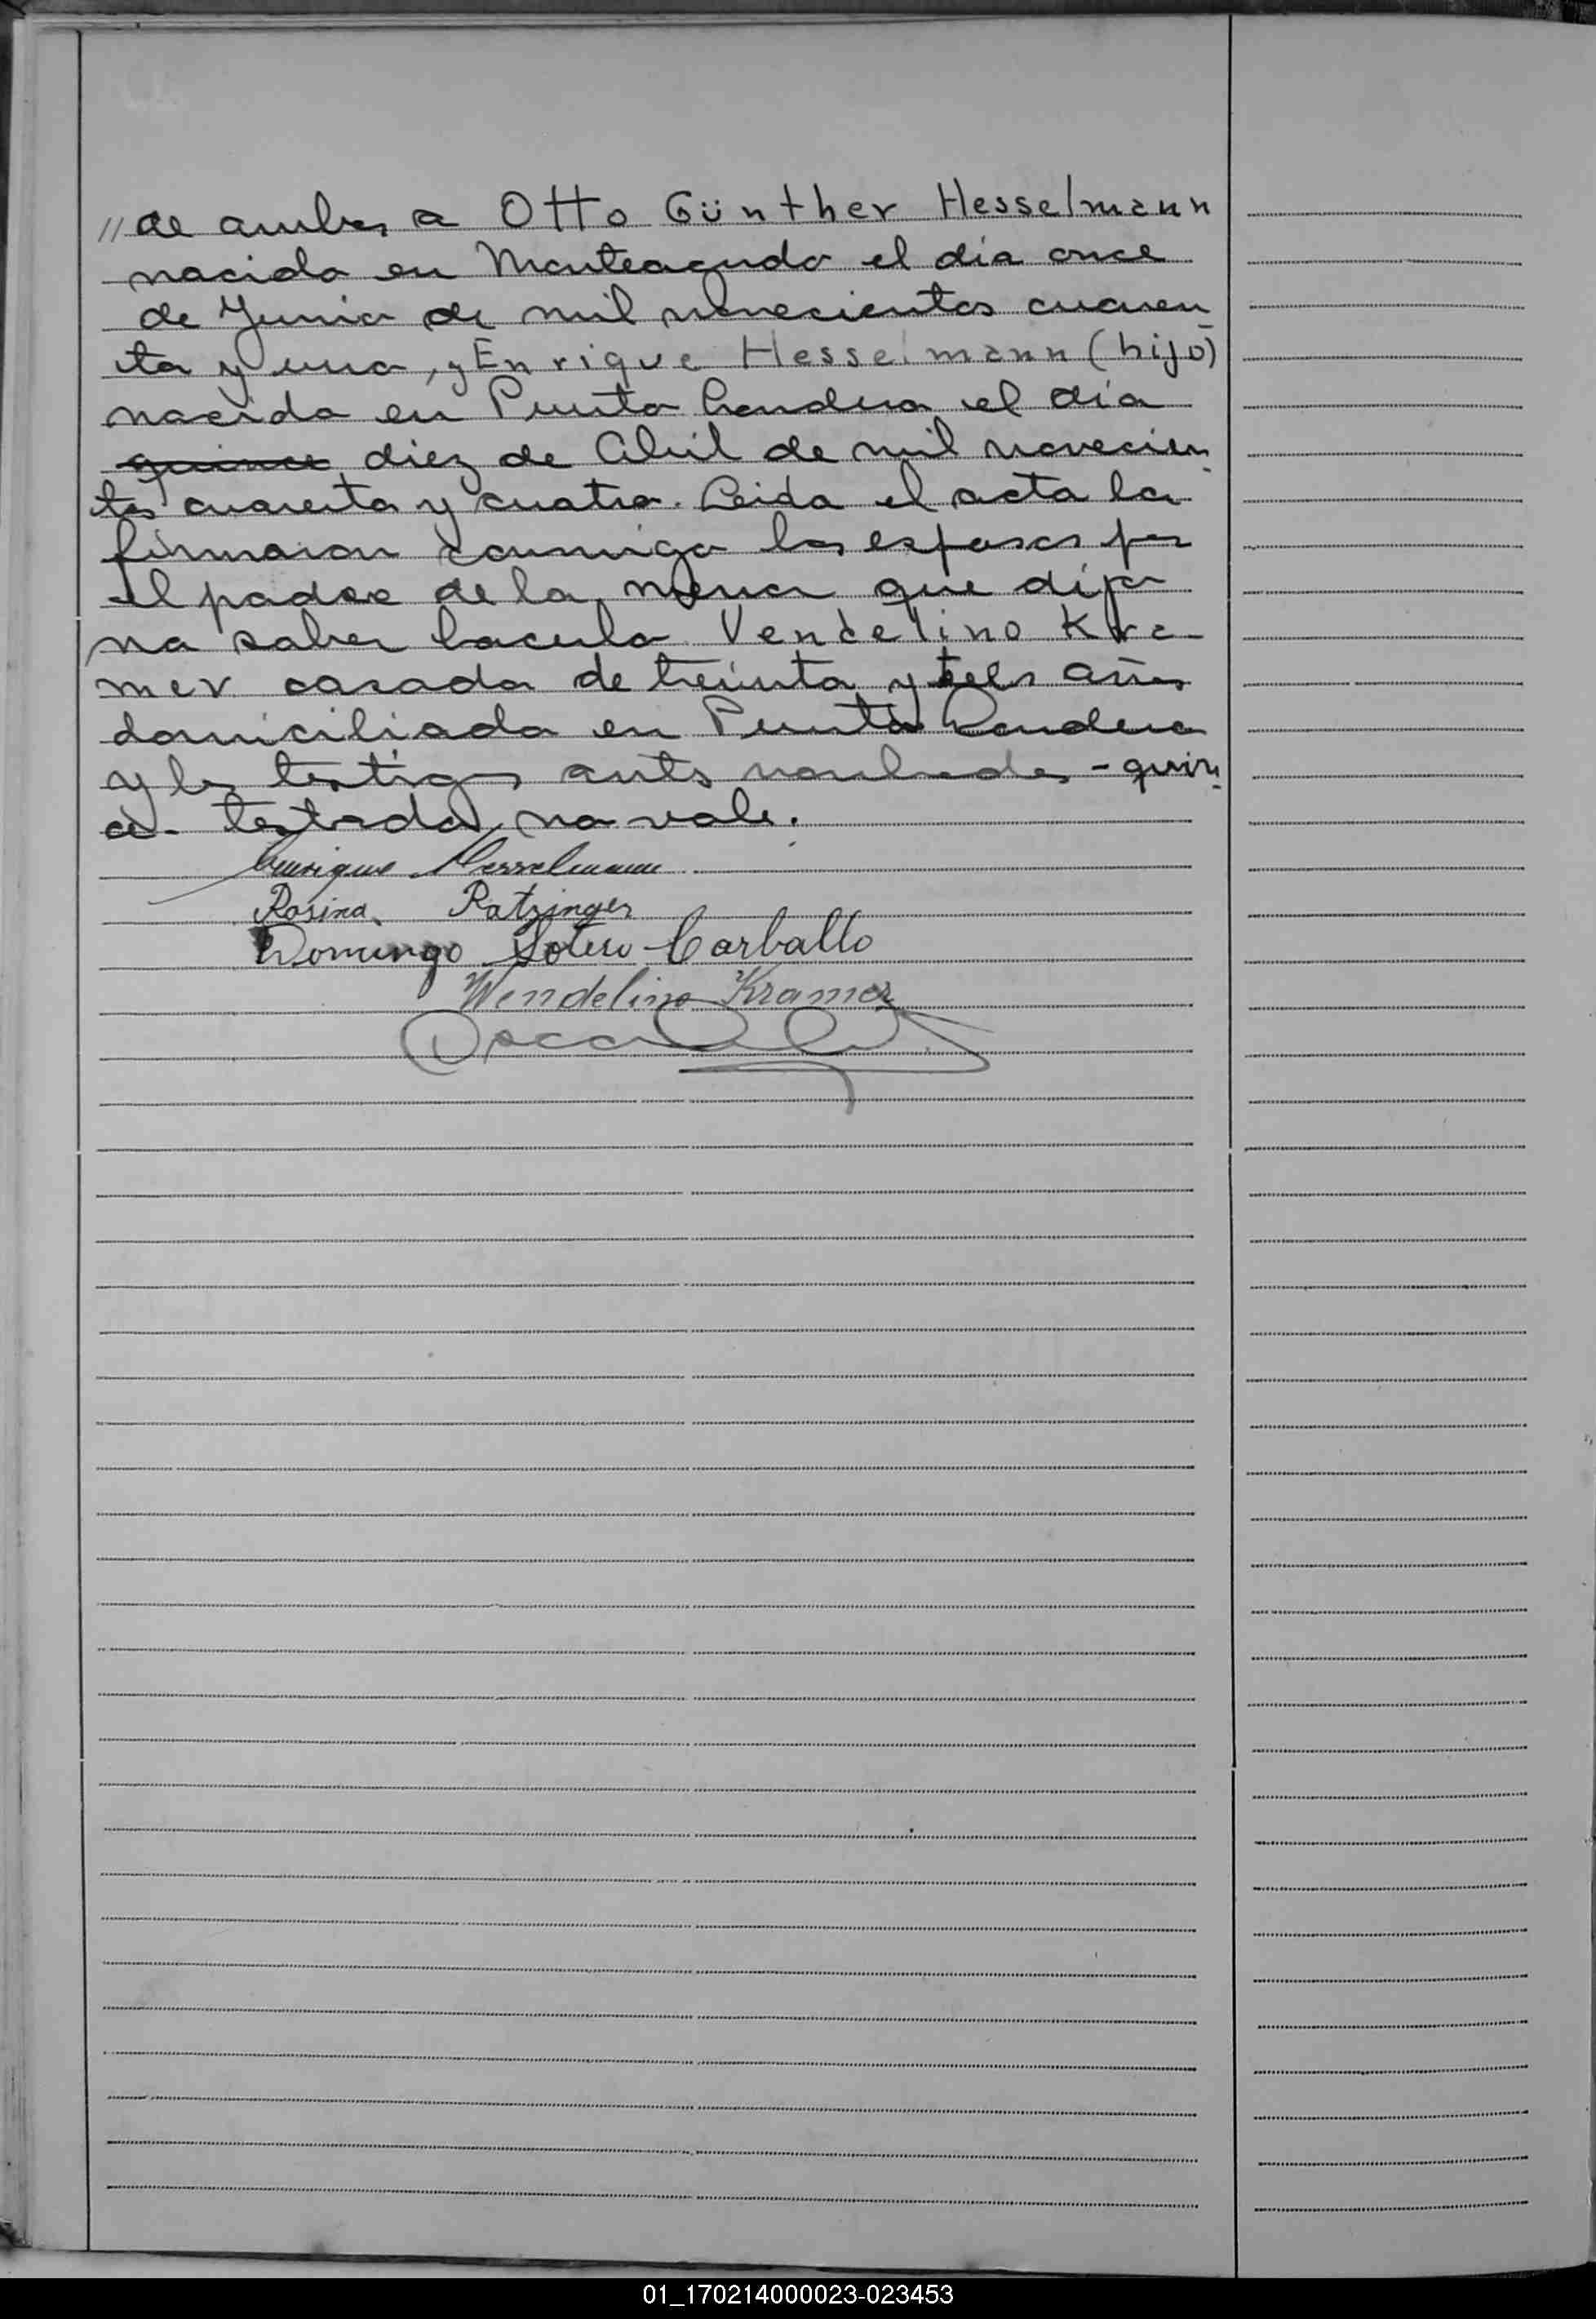 // de ambos a Otto Günther Hesselmann
nacido en Monteagudo el día once
de Junio de mil novecientos cuaren
ta y uno, y Enrique Hesselmann (hijo)
nacido en Puerto el día
quince diez de Abril de mil novecien
tos cuarenta y cuatro. Leida el acta la
firmaron conmigo los esposos por
el padre de la menor que dijo
no saber hacerlo Vendelino Kra-
mer casado de treinta y seis años
domiciliado en Puerto
y los testigos ants nombrados - quin
ce - testado, no vale.
Enrique Hesselmann
Rosina Ratzinger
Domingo Sotero Carballo
Wendelino Kramer
01_170214000023-023453